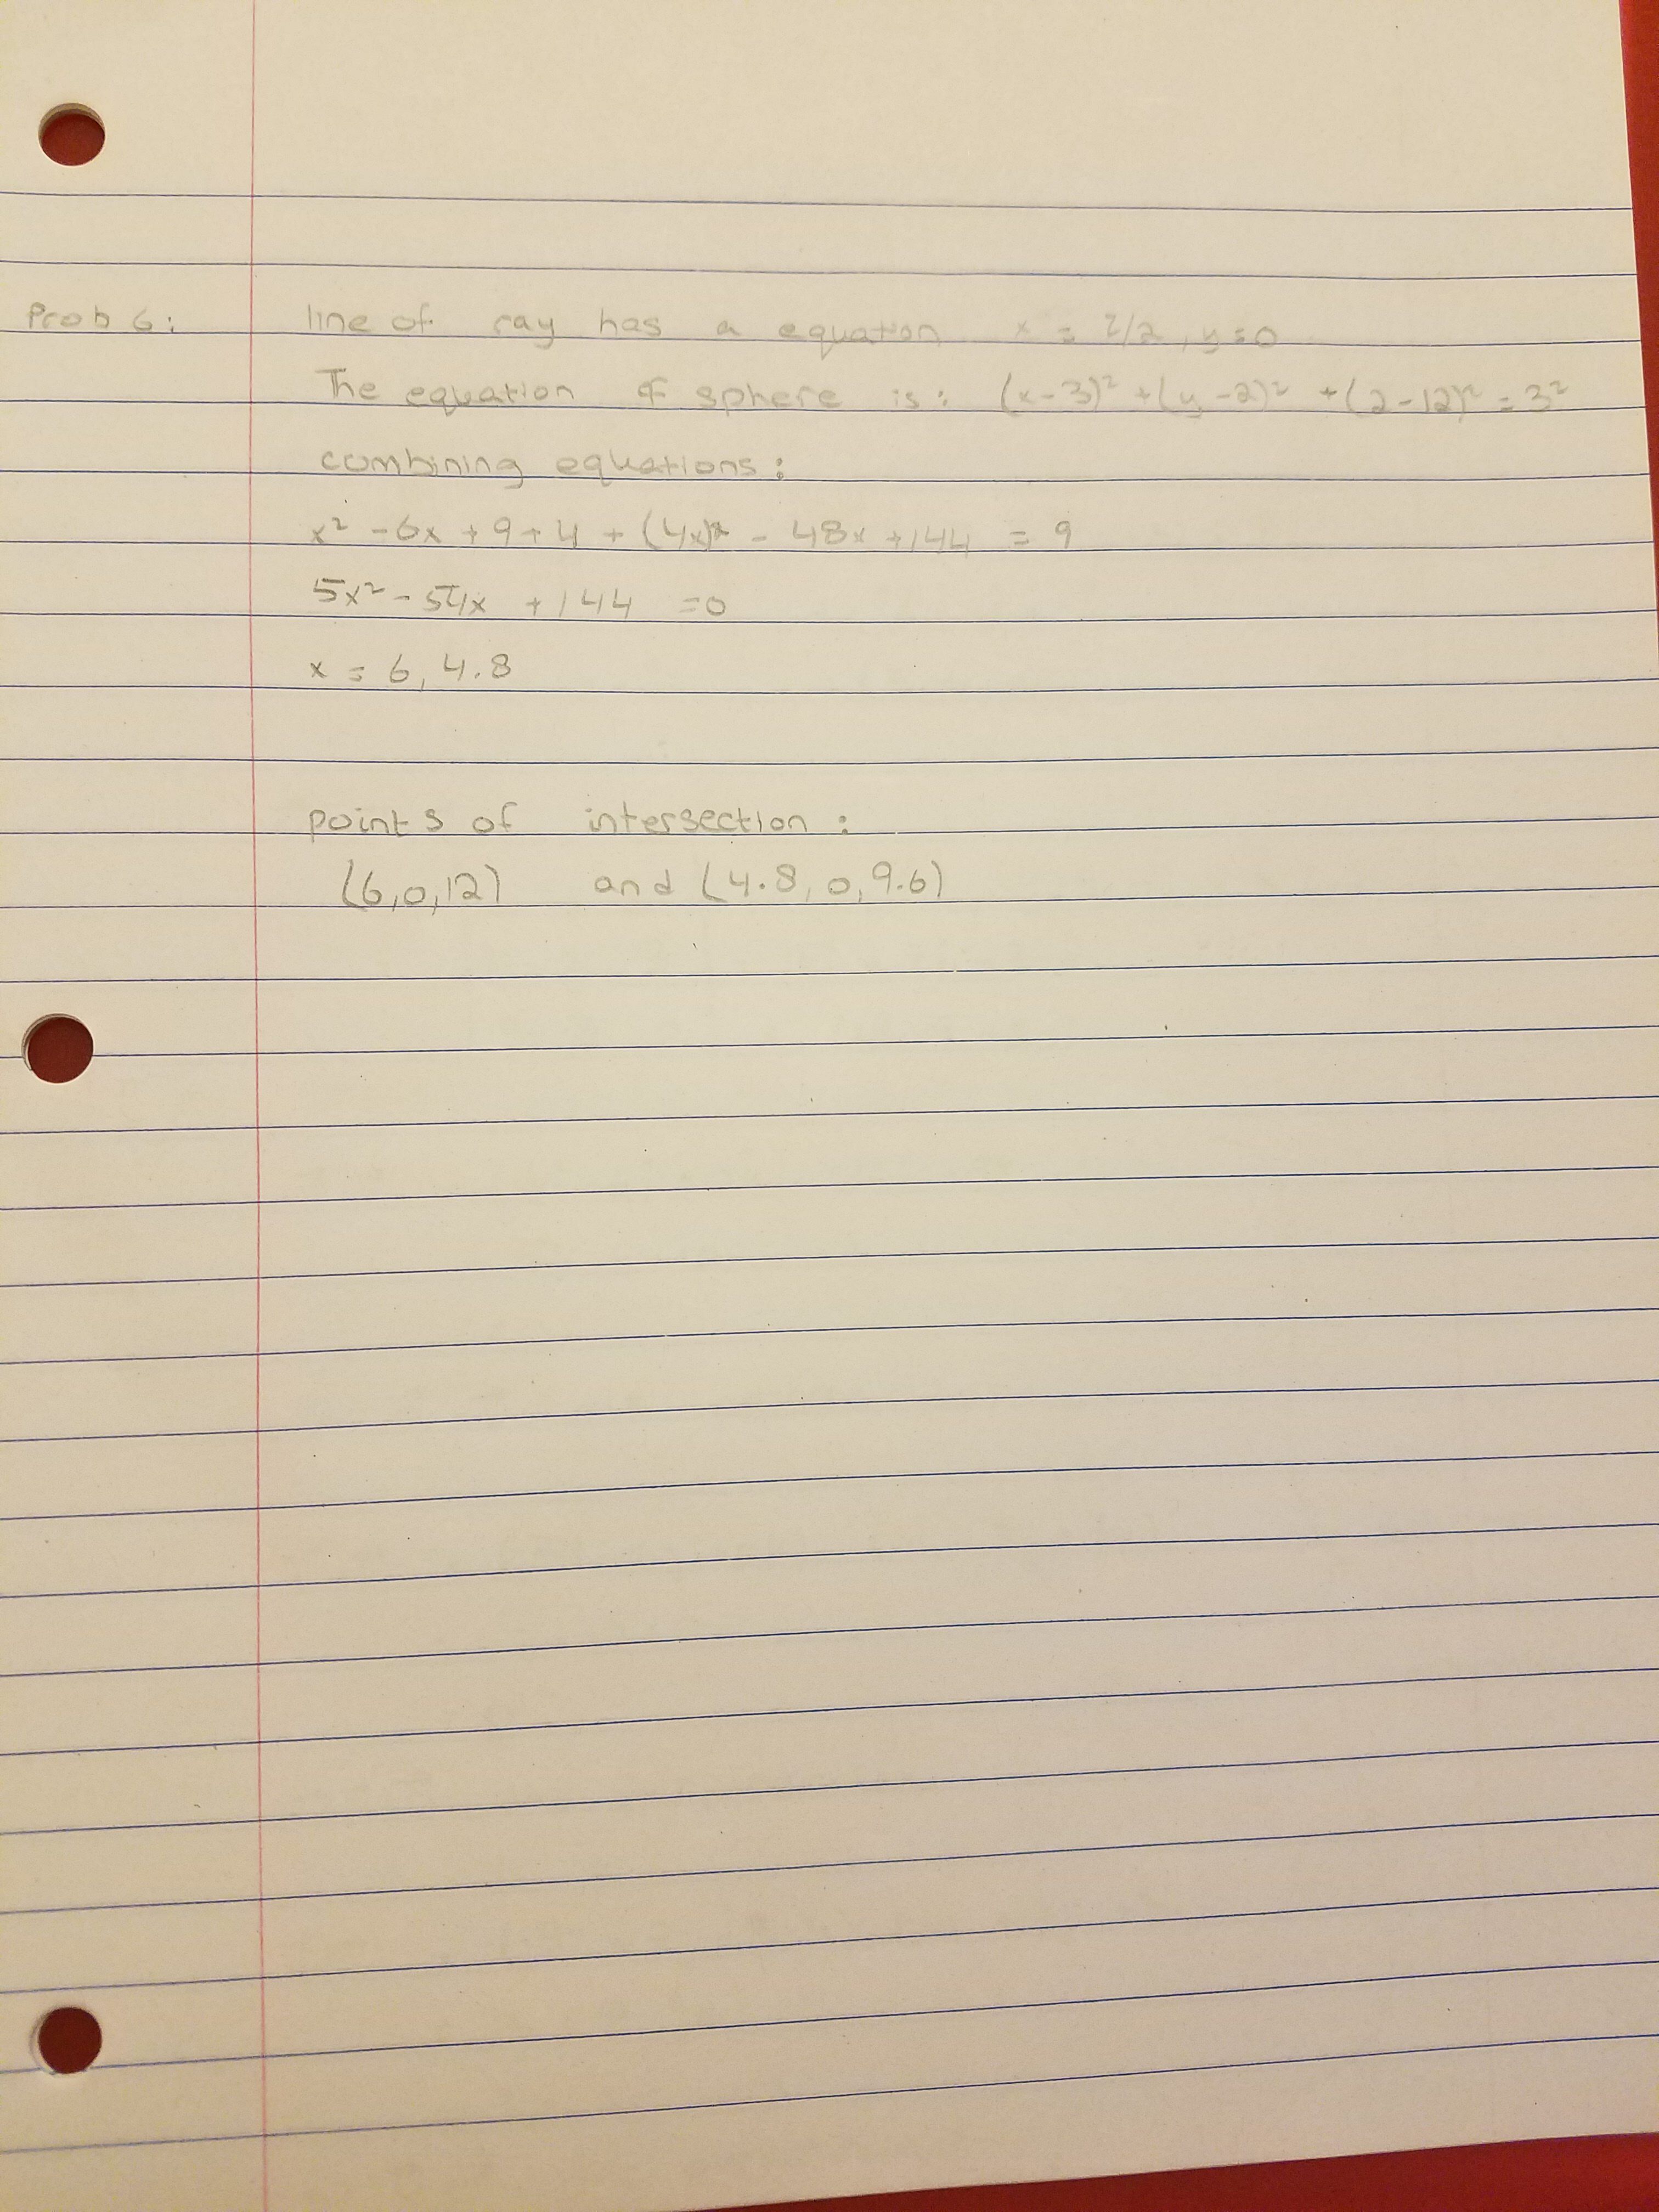 Prob 6:
line of ray has a equation x = z/2, y=0
The equation of sphere is: (x-3)² + (y-2)² + (z-12)² = 3²
combining equations:
x² - 6x + 9 + 4 + (4x)² - 48x + 144 = 9
5x² - 54x + 144 = 0
x = 6, 4.8
points of intersection:
(6,0,12) and (4.8, 0, 9.6)